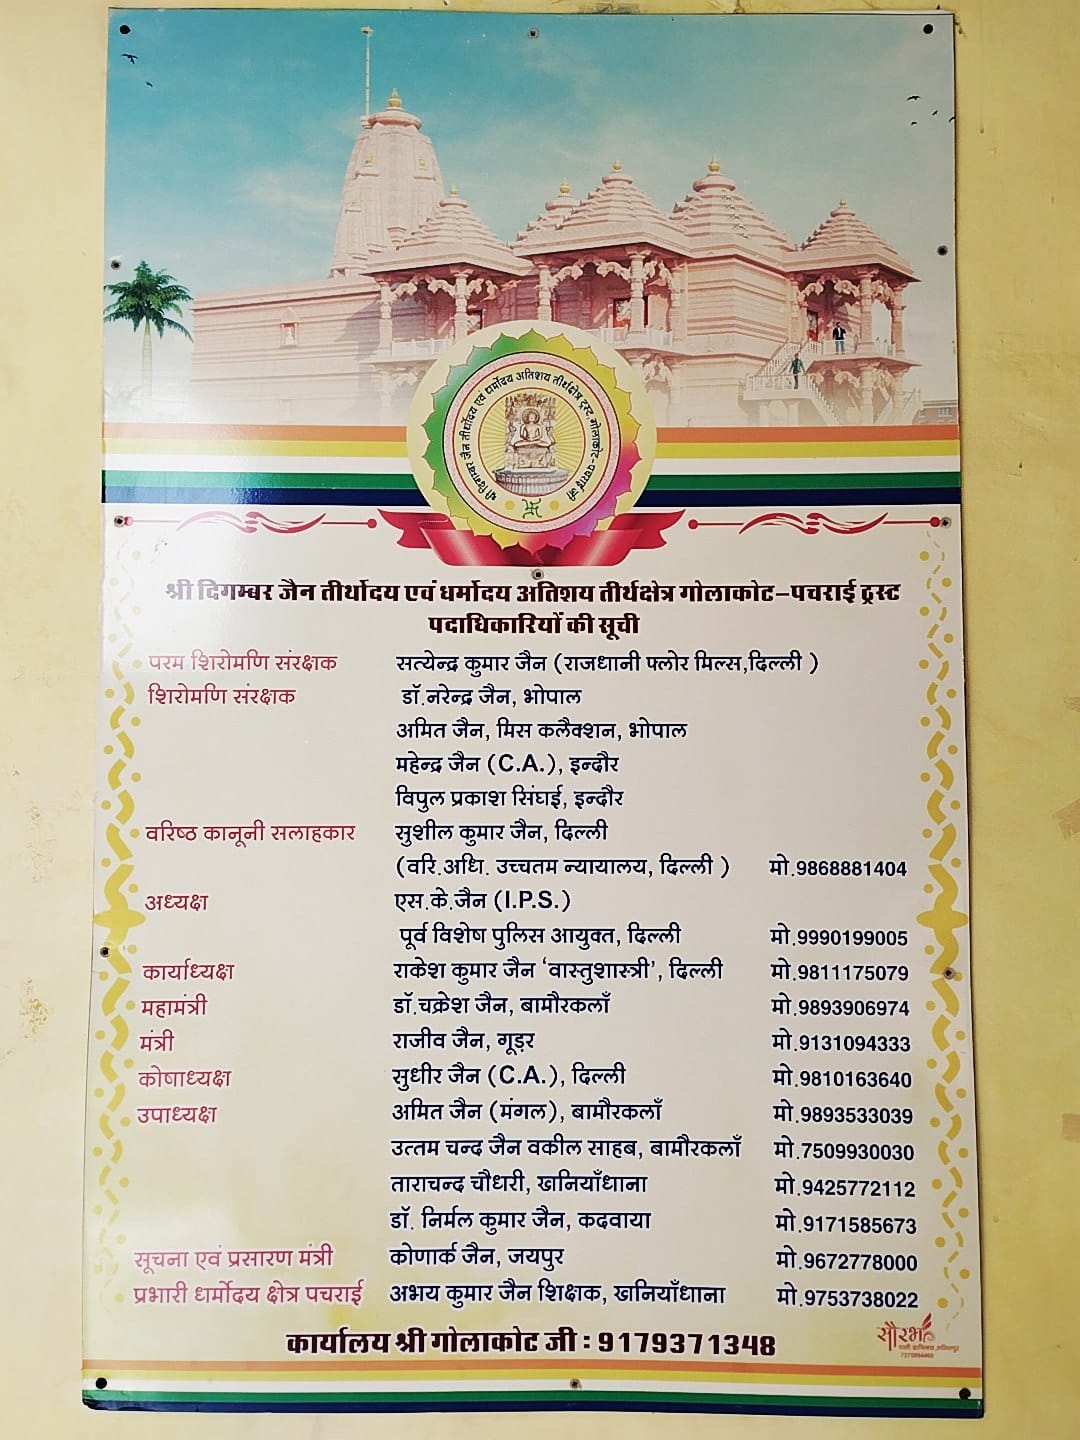 श्री दिगम्बर जैन तीर्थोदय एवं धर्मोदय अतिशय तीर्थक्षेत्र ट्रस्ट, गोलाकोट-पचराई जी
श्री दिगम्बर जैन तीर्थोदय एवं धर्मोदय अतिशय तीर्थक्षेत्र गोलाकोट-पचराई ट्रस्ट
पदाधिकारियों की सूची
परम शिरोमणि संरक्षक सत्येन्द्र कुमार जैन (राजधानी फ्लोर मिल्स,दिल्ली )
शिरोमणि संरक्षक डॉ.नरेन्द्र जैन, भोपाल
अमित जैन, मिस कलैक्शन, भोपाल
महेन्द्र जैन (C.A.), इन्दौर
विपुल प्रकाश सिंघई, इन्दौर
वरिष्ठ कानूनी सलाहकार सुशील कुमार जैन, दिल्ली
(वरि.अधि. उच्चतम न्यायालय, दिल्ली ) मो.9868881404
अध्यक्ष एस.के.जैन (I.P.S.)
पूर्व विशेष पुलिस आयुक्त, दिल्ली मो.9990199005
कार्याध्यक्ष राकेश कुमार जैन ‘वास्तुशास्त्री’, दिल्ली मो.9811175079
महामंत्री डॉ.चक्रेश जैन, बामौरकलाँ मो.9893906974
मंत्री राजीव जैन, गूडर मो.9131094333
कोषाध्यक्ष सुधीर जैन (C.A.), दिल्ली मो.9810163640
उपाध्यक्ष अमित जैन (मंगल), बामौरकलाँ मो.9893533039
उत्तम चन्द जैन वकील साहब, बामौरकलाँ मो.7509930030
ताराचन्द चौधरी, खनियाँधाना मो.9425772112
डॉ. निर्मल कुमार जैन, कदवाया मो.9171585673
सूचना एवं प्रसारण मंत्री कोणार्क जैन, जयपुर मो.9672778000
प्रभारी धर्मोदय क्षेत्र पचराई अभय कुमार जैन शिक्षक, खनियाँधाना मो.9753738022
कार्यालय श्री गोलाकोट जी : 9179371348
सौरभ